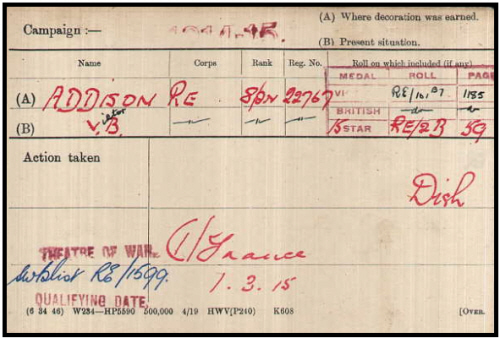 (A) Where decoration was earned.
Campaign :— 1914-15.
(B) Present situation.
Name Corps Rank Reg. No. Roll on which included (if any)
MEDAL ROLL PAGE
(A) ADDISON R E Spr 22767 VI RE/101 B7 1185
BRITISH -do- -do-
(B) Victor B. —„— —„— —„— 15 STAR RE/2B 59
Action taken
Dish
THEATRE OF WAR. (1) France
RE/1599.
QUALIFYING DATE. 1.3.15
(6 34 46) W234—HP5590 500,000 4/19 HWV(P240) K608 [OVER.